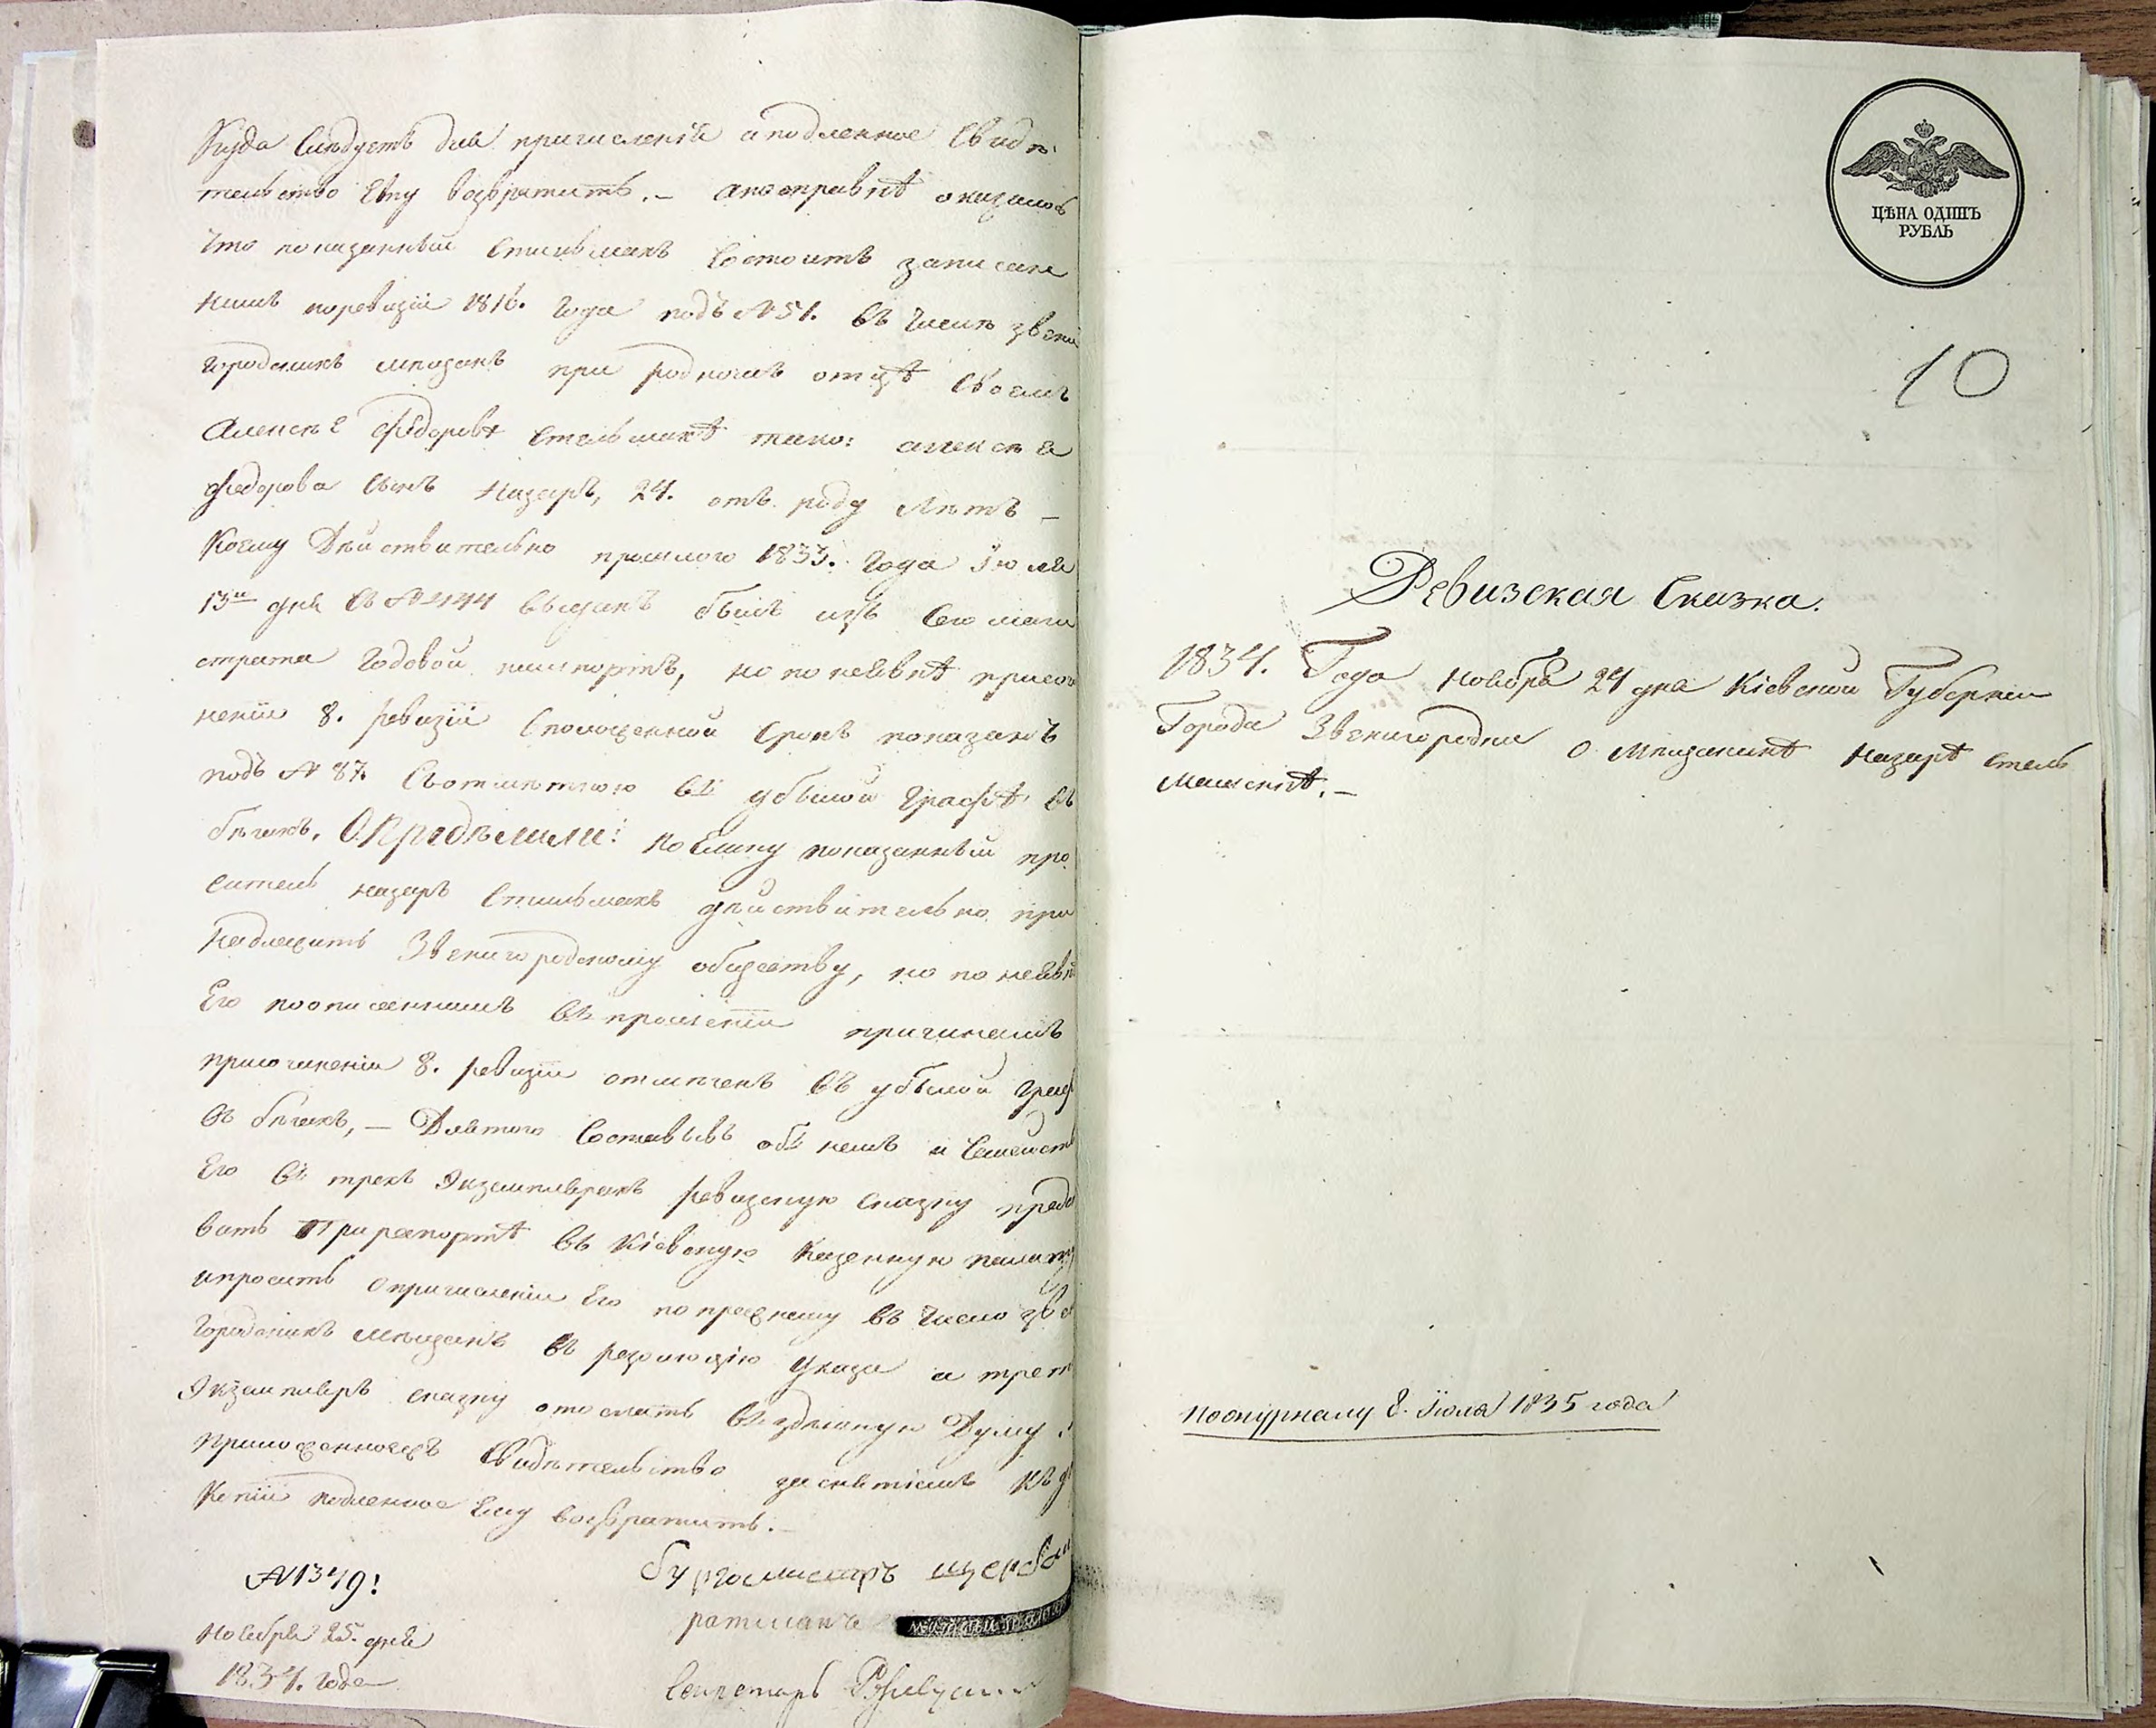 Куда слѣдуетъ для причисленія а подленное Свидѣ
тельство Ему возвратить. – а по справкѣ оказалось
Что показанный Стельмахъ Состоитъ записан
нымъ поревизіи 1816. Года подъ №51. въ числѣ звени
городскихъ мѣщанъ при родномъ отцѣ своемъ
Алексѣе Федоровѣ Стельмахѣ тако: алексѣя
Федорова сынъ Назаръ, 24. отъ роду Лѣтъ –
Коему Дѣйствительно прошлого 1833. Года Іюля
13го дня съ №2144 выданъ былъ изъ Сего маги
страта Годовой пашпортъ, но по неявкѣ присочи
неніи 8. ревизіи Сположенной Срокъ показанъ
подъ №87. Съотмѣткою въ убылой Графѣ въ
бѣгахъ. Опредѣлили: поелику показанный про
ситель назаръ Стельмахъ дѣйствительно при
надлежитъ Звенигородскому обществу, но по неявкѣ
Его поописаннымъ въ прошеніи причинамъ
присочиненіи 8. ревизіи отмѣченъ въ убылой Граф
въ бѣгахъ, – Для того Составивъ объ немъ и Семейств
Его въ трехъ Экземплярахъ ревизскую сказку предс
вить При рапортѣ въ Кіевскую Казенную палату
ипросить опричисленіи Его по прежнему въ число зве
Городскихъ мѣщанъ въ резолюцію Указа а трет
Экземпляръ сказку отослать въ здѣшнюю Думу
Приложенногожъ Свидѣтельство заснятіемъ къ д
Копіи подленное Ему возвратить. –
№1349!
Ноября 25. дня
1834. Года
бургомистръ щербан
ратманъ
Секретарь
ЦѢНА ОДИНЪ
РУБЛЬ
10
Ревизская Сказка.
1834. Года Ноября 24 дня Кіевской Губерніи
Города Звенигородки о мѣщанинѣ Назарѣ Стель
машскѣ. –
пожурналу 8. Іюля 1835 года